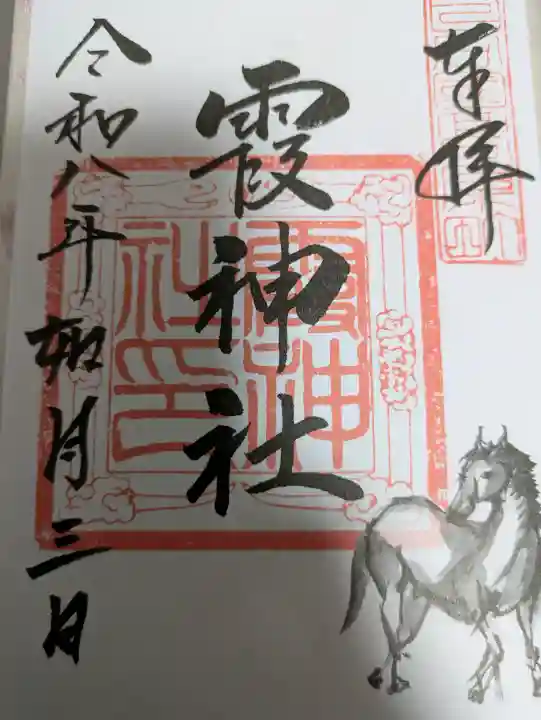 奉拝
霞神社
令和八年如月三日
霞神社印